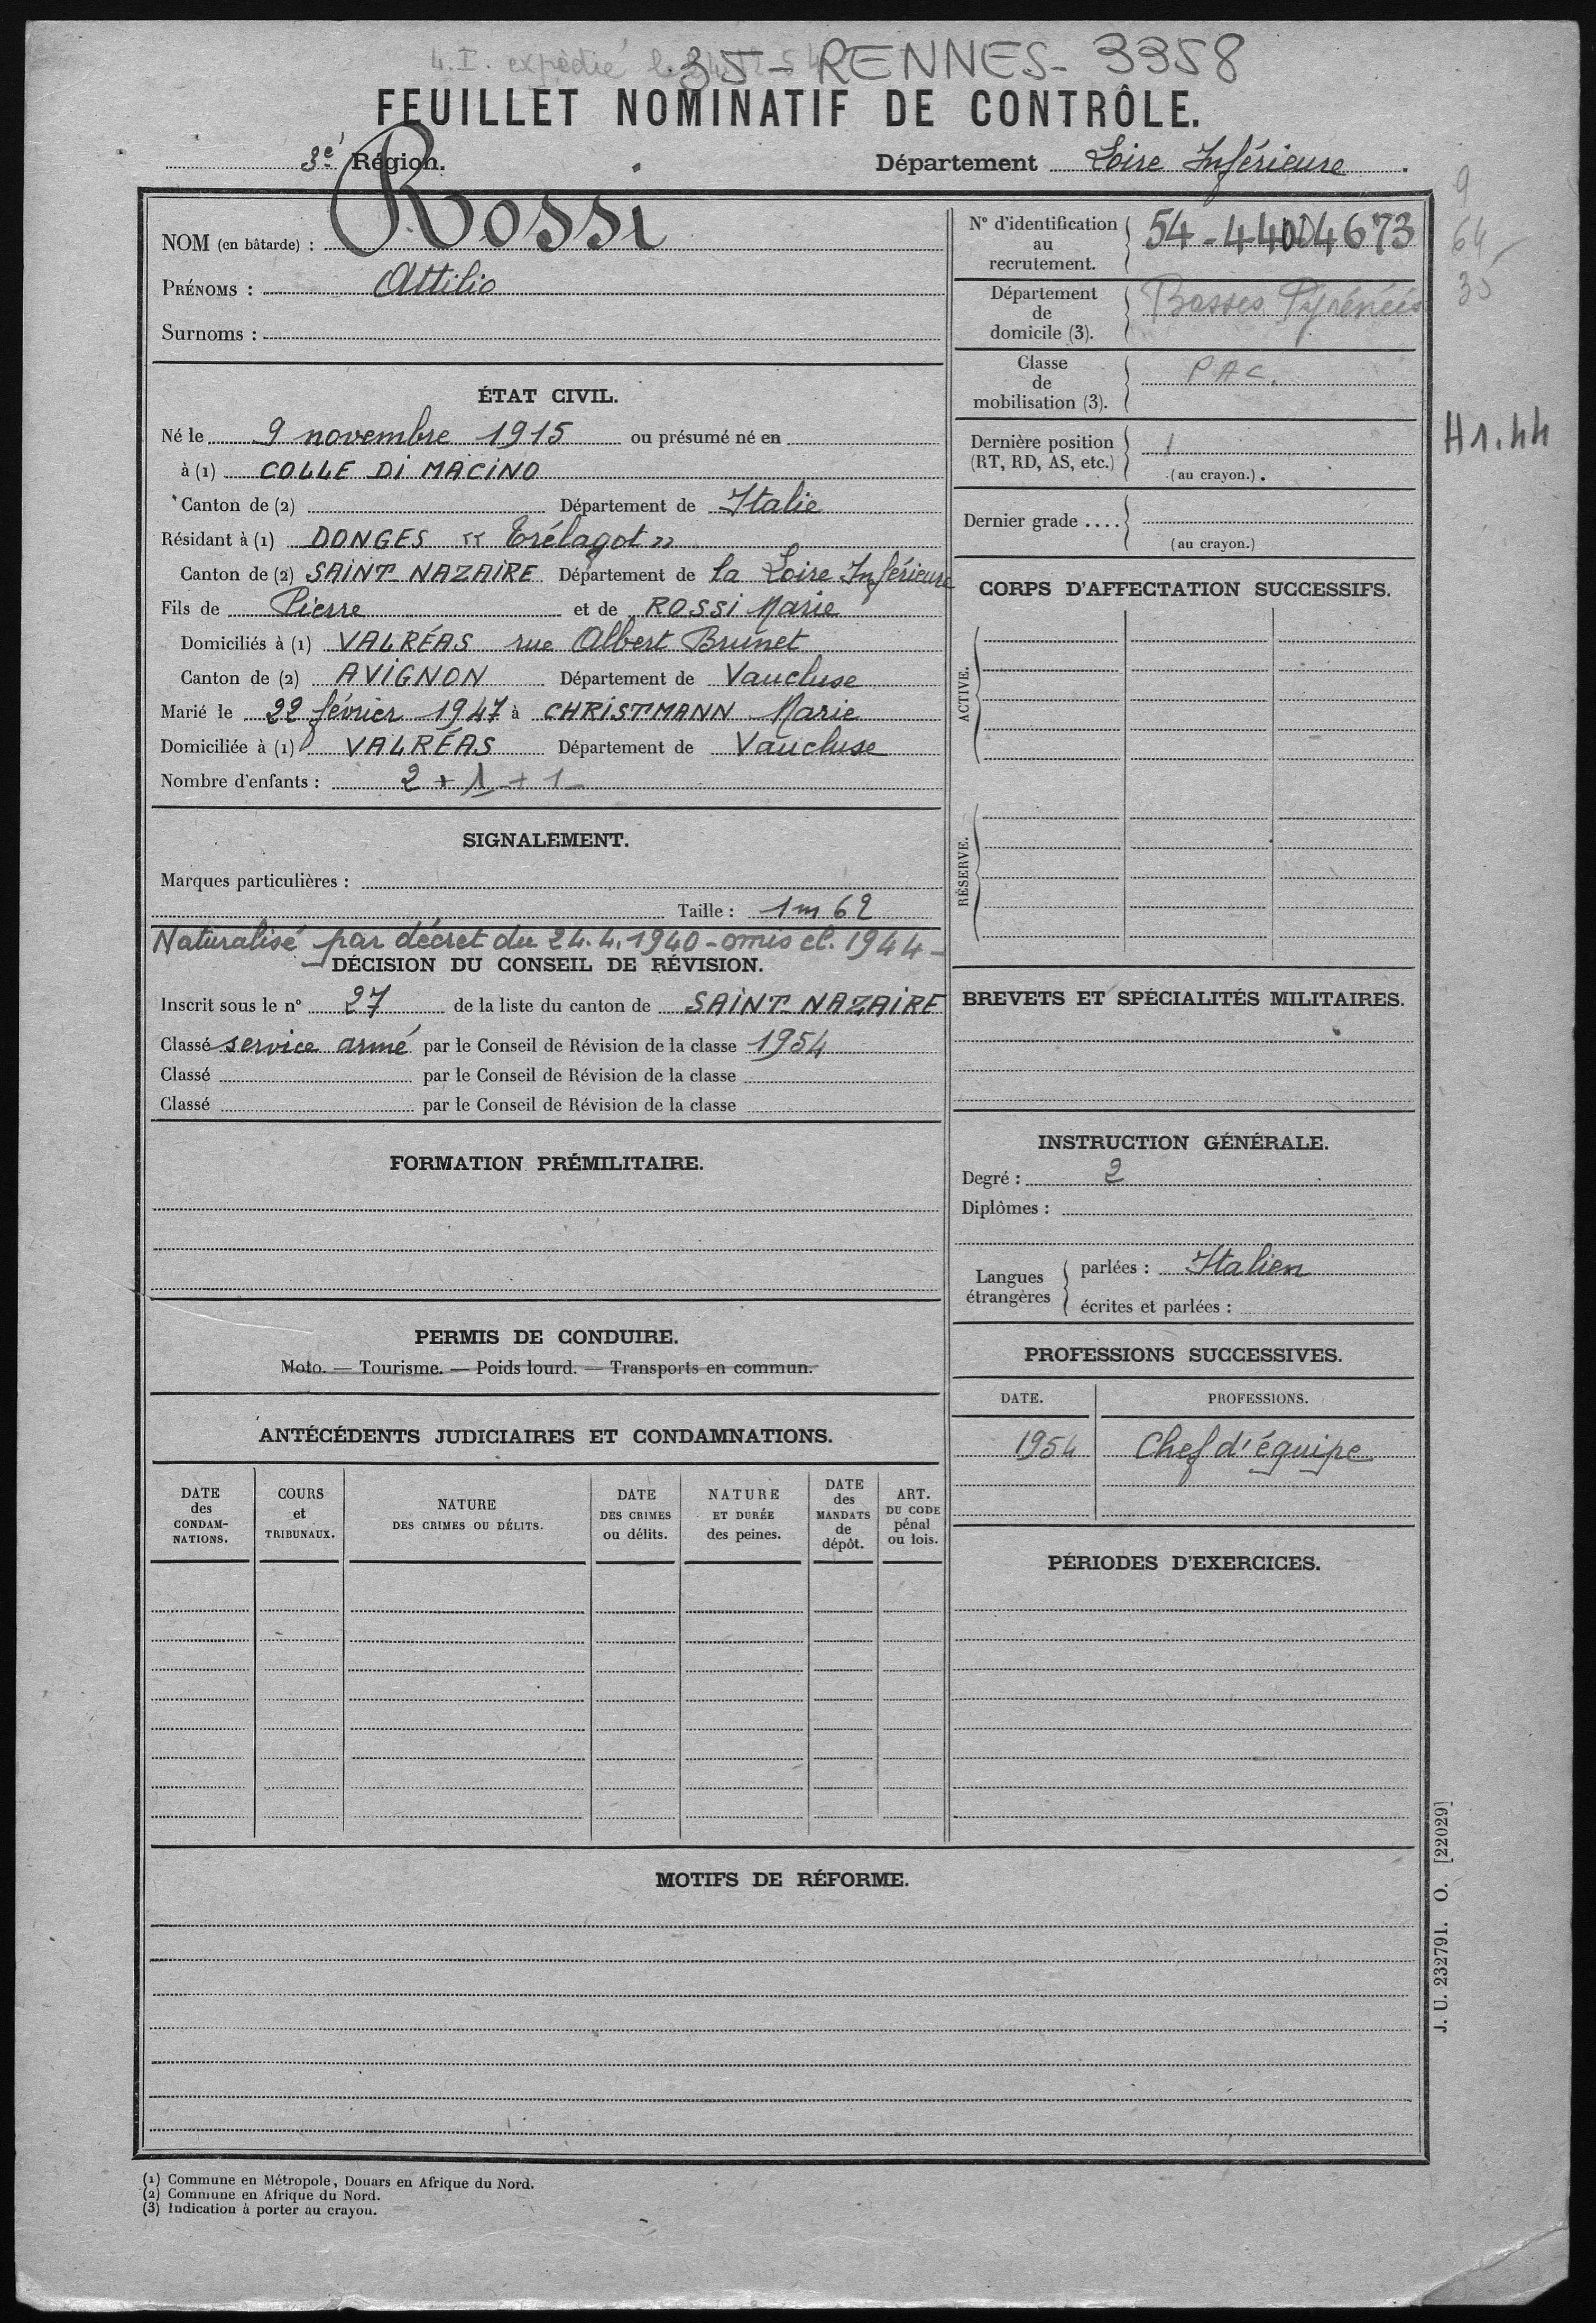 4. I. expédié
35 - RENNES - 3358
FEUILLET NOMINATIF DE CONTRÔLE.
3e Région.
Département Loire Inférieure.
NOM (en bâtarde) : Rossi
PRÉNOMS : Attilio
Surnoms :
ÉTAT CIVIL.
Né le 9 novembre 1915 ou présumé né en
à (1) COLLE Di MACiNO
Canton de (2) Département de Italie
Résidant à (1) DONGES " Trélagot "
Canton de (2) SAiNT NAZAiRE Département de la Loire Inférieure
Fils de Pierre et de ROSSi Marie
Domiciliés à (1) VALRÉAS rue Albert Brunet
Canton de (2) AViGNON Département de Vaucluse
Marié le 22 février 1947 à CHRiSTMANN Marie
Domiciliée à (1) VALRÉAS Département de Vaucluse
Nombre d'enfants : 2 + 1 + 1
SIGNALEMENT.
Marques particulières :
Taille : 1m 62
Naturalisé par décret du 24.4.1940 - omis cl. 1944 -
DÉCISION DU CONSEIL DE RÉVISION.
Inscrit sous le n° 27 de la liste du canton de SAiNT NAZAiRE
Classé service armé par le Conseil de Révision de la classe 1954
Classé par le Conseil de Révision de la classe
Classé par le Conseil de Révision de la classe
FORMATION PRÉMILITAIRE.
PERMIS DE CONDUIRE.
Moto. — Tourisme. — Poids lourd. — Transports en commun.
ANTÉCÉDENTS JUDICIAIRES ET CONDAMNATIONS.
DATE des CONDAM-NATIONS.
COURS et TRIBUNAUX.
NATURE DES CRIMES OU DÉLITS.
DATE DES CRIMES ou délits.
NATURE ET DURÉE des peines.
DATE des MANDATS de dépôt.
ART. DU CODE pénal ou lois.
N° d'identification au recrutement. 54-44004673
Département de domicile (3). Basses Pyrénées
Classe de mobilisation (3). PAC.
Dernière position (RT, RD, AS, etc.) 1
(au crayon.).
Dernier grade ....
(au crayon.)
CORPS D'AFFECTATION SUCCESSIFS.
ACTIVE.
RÉSERVE.
BREVETS ET SPÉCIALITÉS MILITAIRES.
INSTRUCTION GÉNÉRALE.
Degré : 2
Diplômes :
Langues étrangères
parlées : Italien
écrites et parlées :
PROFESSIONS SUCCESSIVES.
DATE. PROFESSIONS.
1954 Chef d'équipe
PÉRIODES D'EXERCICES.
9
64
35
H1.44
MOTIFS DE RÉFORME.
J. U. 232791. O. [22029]
(1) Commune en Métropole, Douars en Afrique du Nord.
(2) Commune en Afrique du Nord.
(3) Indication à porter au crayon.